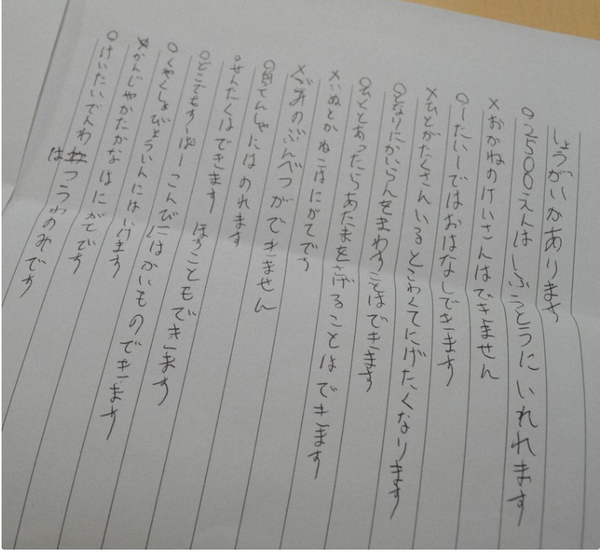 しょうがいがあります
○2500えんはしゅうとうにいれれます
×おかねのけいさんはできません
○1たい1ではおはなしできます
×ひとがたくさんいるとこわくてにげたくなります
○となりにかいらんをまわすことはできます
○ひととあったらあたまをさげることはできます
×いぬとかねこはにがてです
×ごみのぶんべつができません
○自てんしゃにはのれます
○せんたくはできます ほすこともできます
○どこでもすーぱーこんびにはかいものできます
○くやくしょびょういんにはいけます
×かんじやかたかなはにがてです
○けいたいでんわは つうわのみです